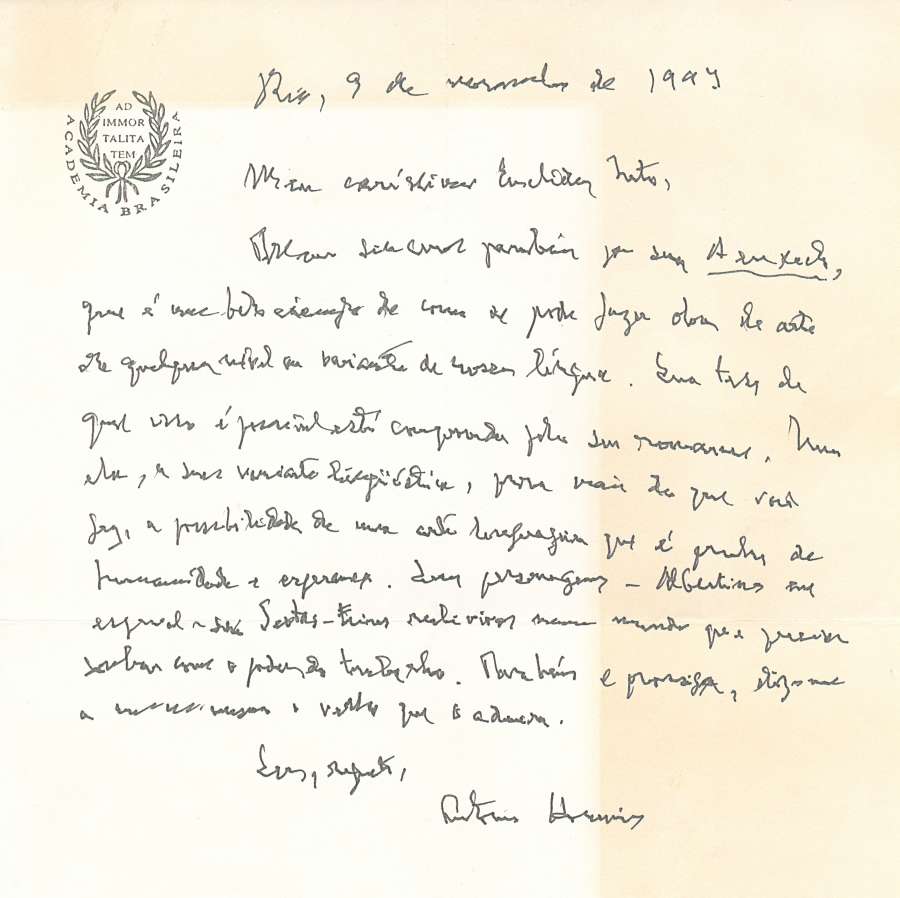 ACADEMIA BRASILEIRA
AD
IMMOR
TALITA
TEM
Rio, 9 de de 1997
Meu caríssimo Euclides Neto,
parabéns por sua A enxada,
que é um belo exemplo de como se pode fazer obra de arte
de qualquer nível ou variante de nossa língua. Sua tese de
que isso é possível está comprovada pelo seu romance. Num
ela, a sua variante lingüística, prova mais do que você
faz, a possibilidade de uma arte que é de
humanidade e esperança. Seus personagens – Albertina em
especial – são redivivos num mundo que precisa
sonhar com o poder do trabalho. Parabéns e prossiga, digo-me
a o velho que o admira.
Seu,
Antonio Houaiss